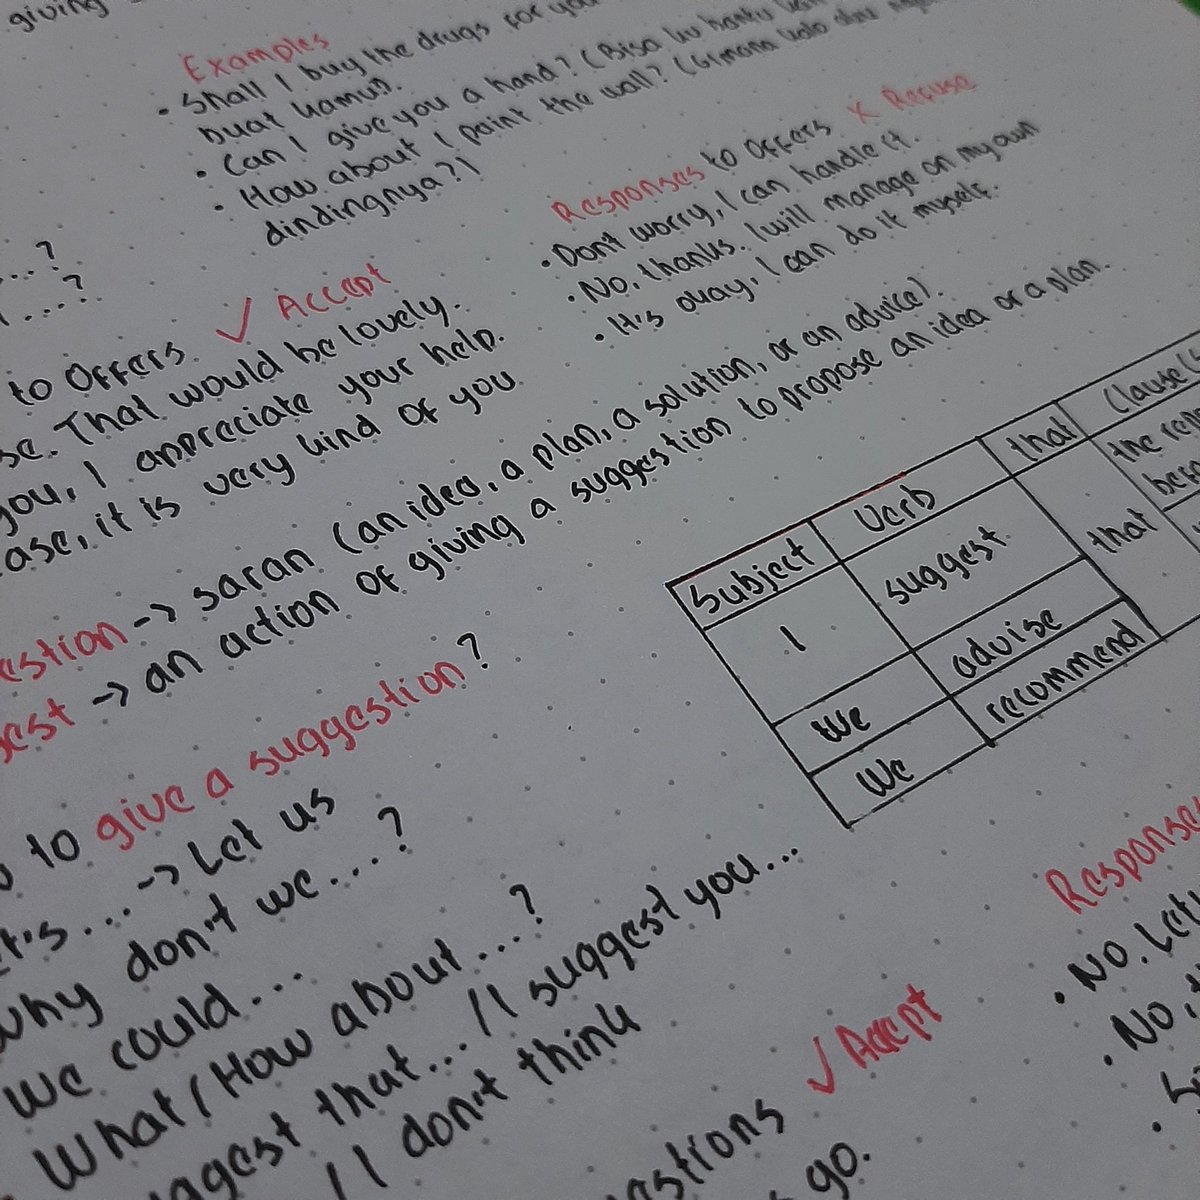 giving
Examples
• Shall I buy the drugs for you
buat kamu?).
• Can I give you a hand? (Bisa ku bantu
• How about I paint the wall? (Gimana kalo aku
dindingnya?)
...?
...?
to Offers. ✓ Accept
se. That would be lovely.
you, I appreciate your help.
ase, it is very kind of you
Responses to Offers X Refuse
• Don't worry, I can handle it.
• No, thanks. I will manage on my own
• It's okay, I can do it myself.
estion -> saran (an idea, a plan, a solution, or an advice).
gest -> an action of giving a suggestion to propose an idea or a plan.
Subject Verb that Clause (
I suggest that the rep
We advise
We recommend
to give a suggestion?
et's... -> Let us
Why don't we...?
We could...
What/How about...?
ggest that... / I suggest you...
/ I don't think
estions ✓ Accept
go.
Responses
• No. Let
• No, t
•